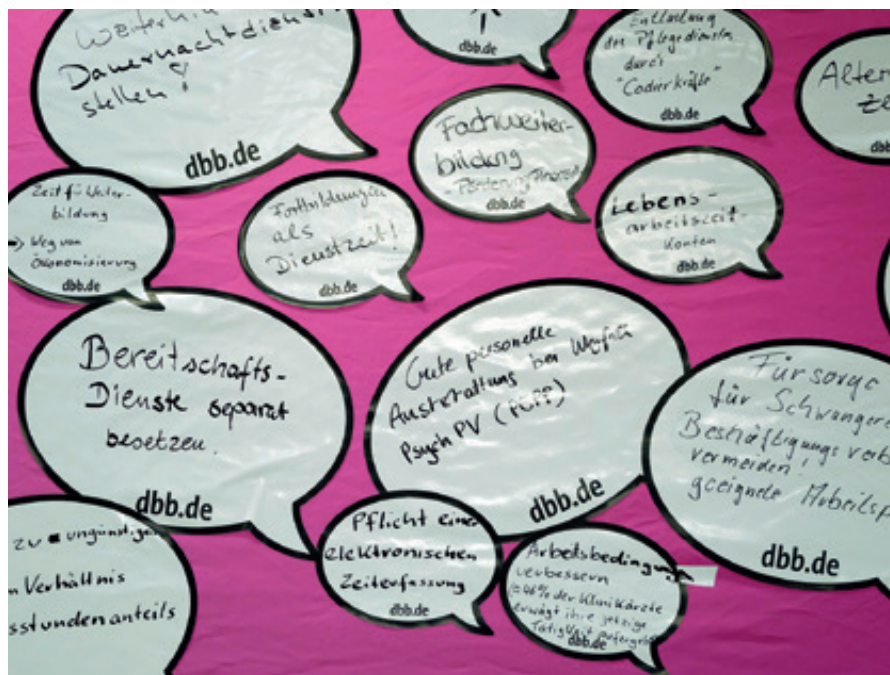 Weiterhin
Dauernachtdienst
stellen!
dbb.de
dbb.de
Entlastung
des Pflegedienstes
durch
"Codierkräfte"
dbb.de
Altern
dbb
Fachweiter-
bildung
dbb.de
Zeit für Weiter-
bildung
-> Weg von
Ökonomisierung
dbb.de
Fortbildungen
als
Dienstzeit!
dbb.de
Lebens-
arbeitszeit-
Konten
dbb.de
Bereitschafts-
Dienste separat
besetzen.
dbb.de
Gute personelle
Ausstattung bei
Psych PV (PEPP)
dbb.de
Fürsorge
für Schwangere
Beschäftigungsverb
vermeiden!
geeignete Arbeitsp
dbb.de
zu ungünstigen
n Verhältnis
sstundenanteils
Pflicht einer
elektronischen
Zeiterfassung
dbb.de
Arbeitsbedingungen
verbessern
46% der Klinikärzte
erwägt ihre jetzige
Tätigkeit
dbb.de